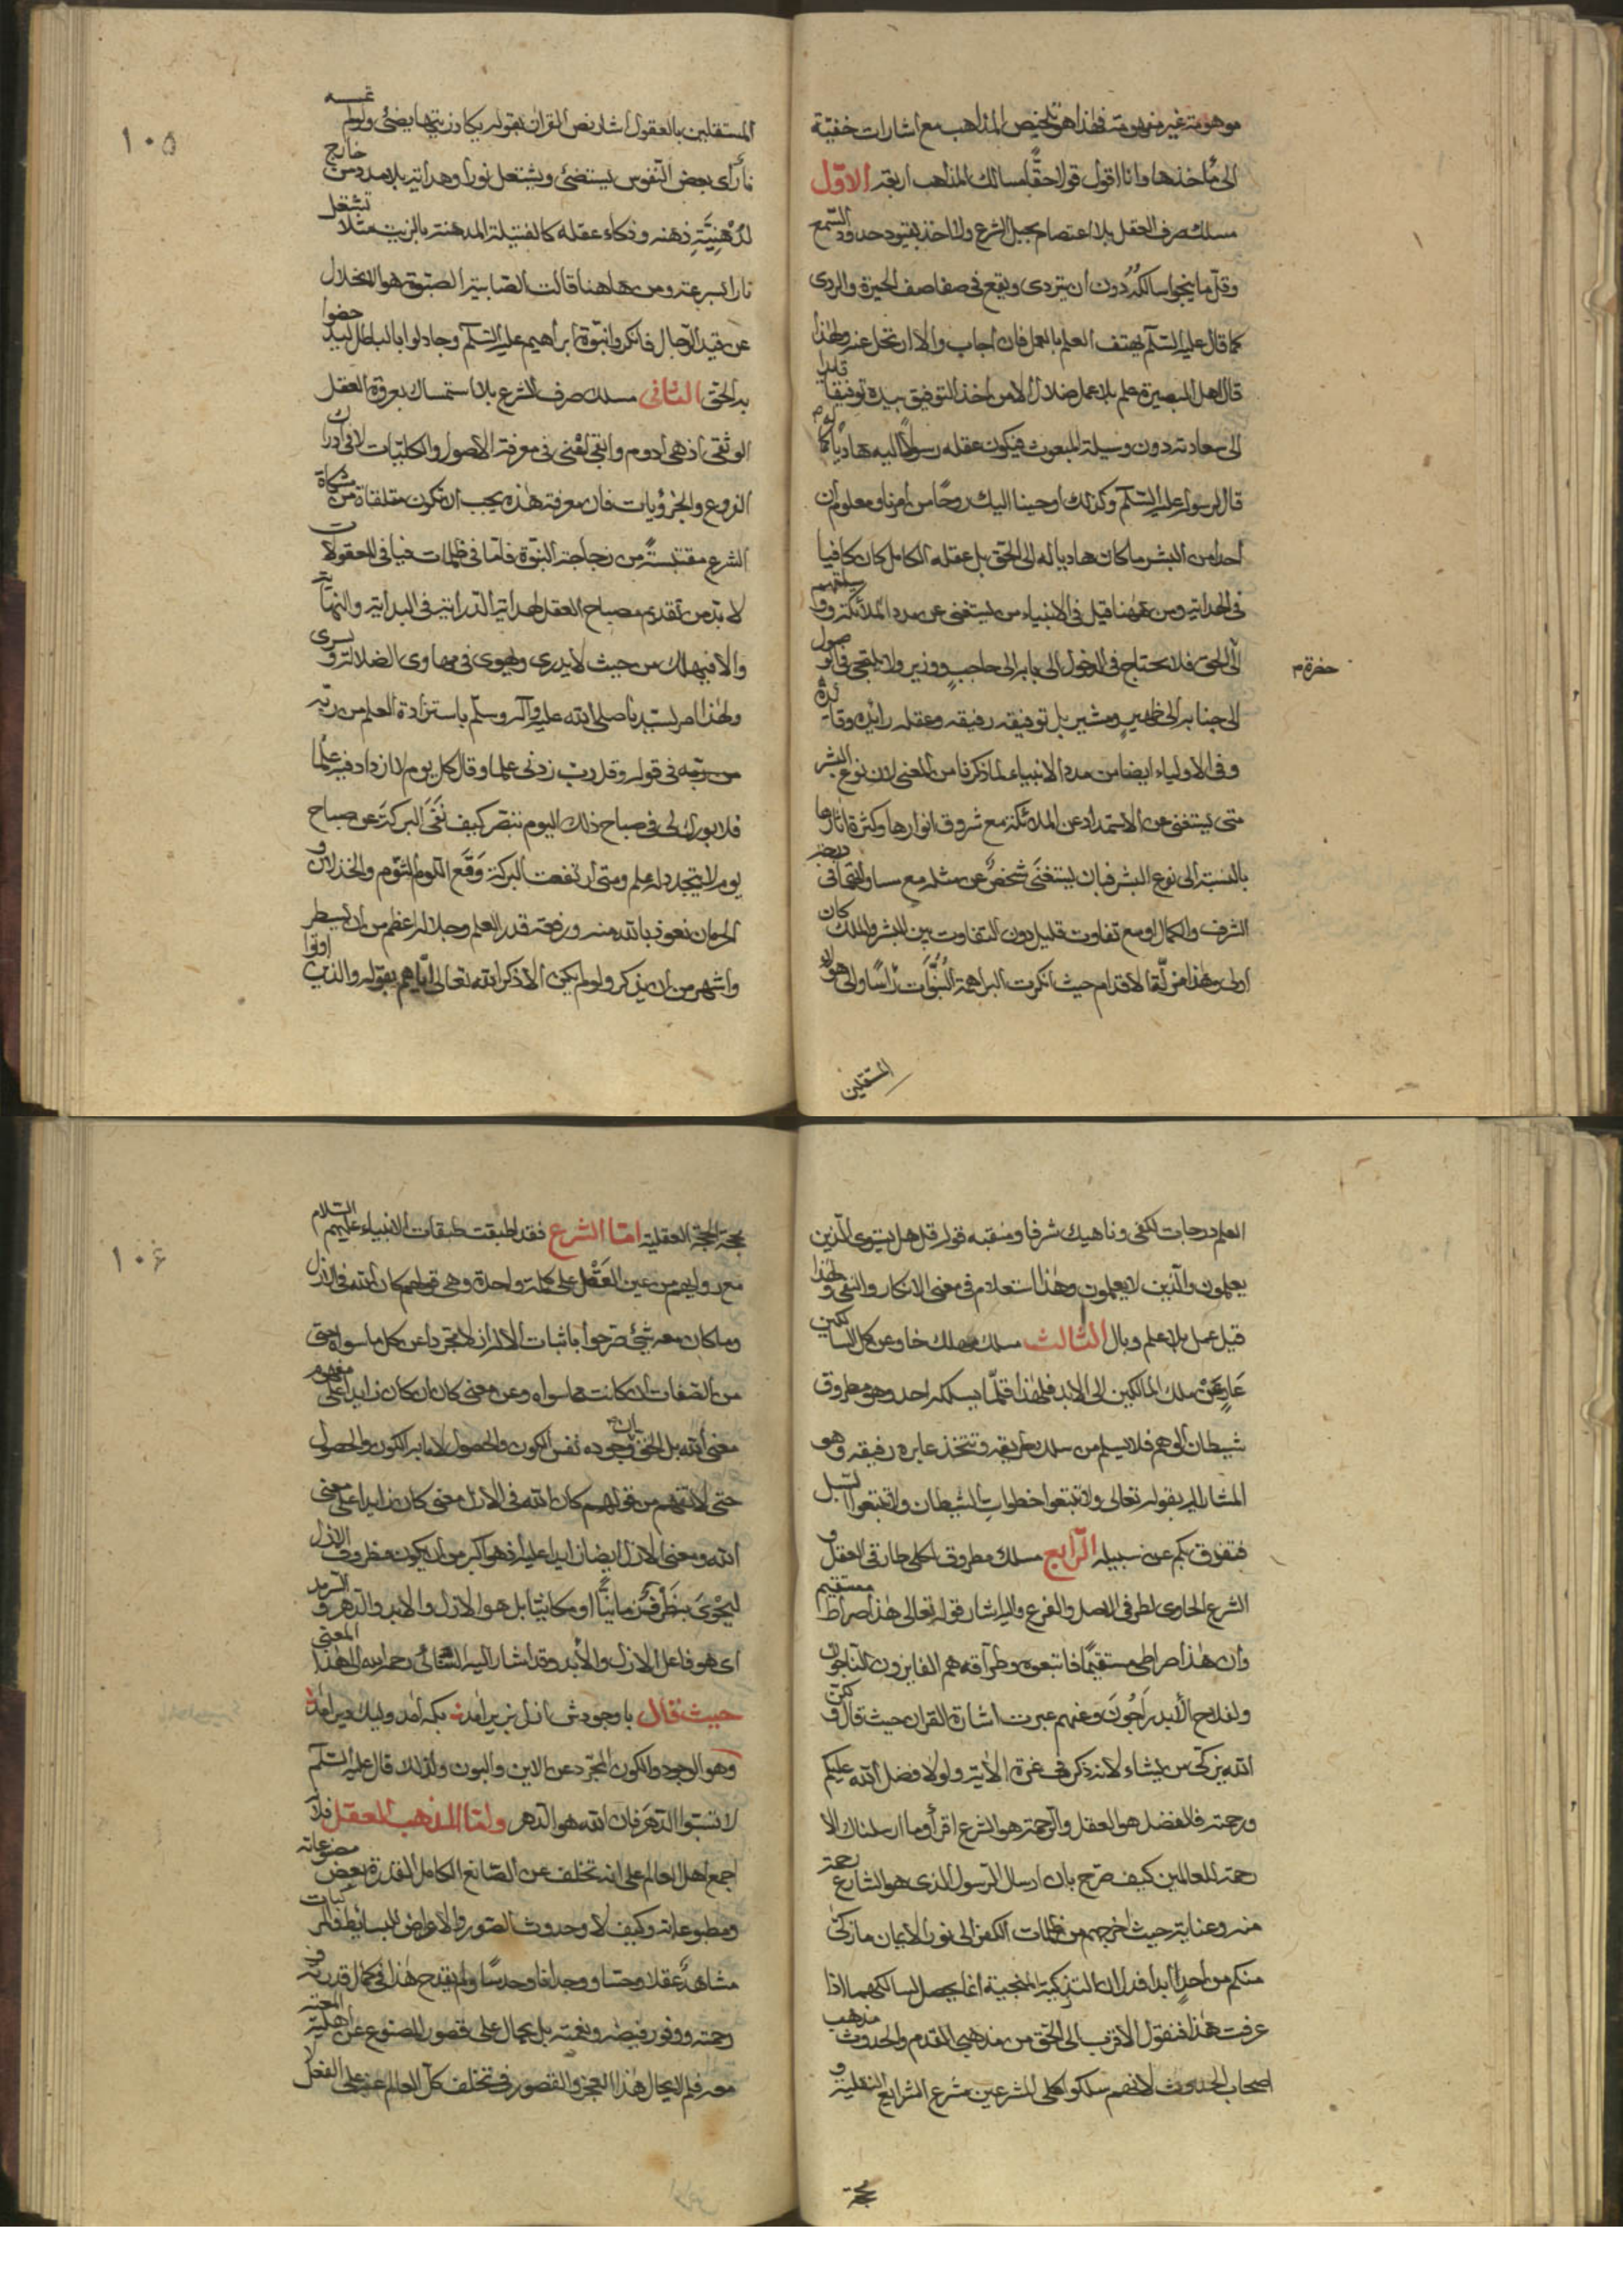 موهوبته غير منهوبته فهذا هو تلخيص المذاهب مع اشارات خفيّة
الى مأخذها وانا اقول قولا حقّا مسالك المذاهب اربعة الاوّل
مسلك صرف العقل بلا اعتصام بحبل الشرع ولا اخذ بقيود حدود السّمع
وقلّ ما ينجوا سالكه دون ان يتردى ويقع فى صفاصف الحيرة والردى
كما قال عليه السّلم يهتف العلم بالعمل فان اجاب والا ارتحل عنه ولهذا
قال اهل البصيرة علم بلا عمل ضلال الا من اخذ التوفيق بيده توفيقا قايدا
الى سعادته دون وسيلة المبعوث فيكون عقله رسولا اليه هاديا له كما
قال لرسوله عليه السّلم وكذلك اوحينا اليك روحًا من امرنا ومعلوم ان
احدا من البشر ما كان هاديا له الى الحق بل عقله الكامل كان كافيا
فى الهداية ومن ههنا قيل فى الانبياء من يستغنى عن مدد الملائكة ووسيلتهم
الى الحق فلا يحتاج فى الدخول الى بابه الى حاجب ووزير ولا يلتجئ فى الوصول
حضرة م
الى جنابه الى ظهير ومشير بل توفيقه رفيقه وعقله رائده وقائده
وفى الاولياء ايضا من مدد الانبياء لما ذكرنا من المعنى لان نوع البشر
متى يستغنى عن الاستمداد عن الملائكة مع شروق انوارها وكثرة اثارها
بالنسبة الى نوع البشر فبان يستغنى شخصٌ عن مثله مع تساوى درجتهما فى
الشرف والكمال او مع تفاوت قليل دون التفاوت بين البشر والملك كان
اولى وهذا مزلّة الاقدام حيث انكرت البراهمة النّبوّات رأسًا والى هؤلاء
المستقلين
١٠٥
المستقلين بالعقول اشار نص القران بقوله يكاد زيتها يضئ ولو لم تمسسه
نار اى بعض النّفوس يستضئ ويشتعل نورا وهداية بلا مدد من خارج
لدهنيّة ذهنه وذكاء عقله كالفتيلة المدهنة بالزيت مثلا تشتعل
نارا بسرعة ومن هاهنا قالت الصّابية الصّبوة هو الانحلال
عن قيد الرّجال فانكروا نبوّة ابراهيم عليه السّلم وجادلوا بالباطل ليدحضوا
به الحق الثانى مسلك صرف الشرع بلا استمساك بعروة العقل
الوثقى اذ هى ادوم وابقى اعنى فى معرفة الاصول والكليّات لا فى ادراك
الفروع والجزؤيات فان معرفة هذه يجب ان تكون متلقاة من مشكاة
الشرع مقتبسة من زجاجة النبوّة فامّا فى ظلمات فيافى المعقولات
لا بدّ من تقديم مصباح العقل لهداية الدّراية فى البداية والنهاية
والا فيهلك من حيث لا يدرى ويهوى فى مهاوى الضلالة ويسرى
ولهذا امر لسيّدنا صلى الله عليه وآله وسلّم باستزادة العلم من ربّه
من ربّه فى قوله وقل ربّ زدنى علما وقال كل يوم لا ازداد فيه علما
فلا بورك لى فى صباح ذلك اليوم تبصّر كيف نفى البركة عن صباح
يوم لا يتجدد له علم ومتى ارتفعت البركة وقع اللوم الشوم والخذلان و
الحرمان نعوذ بالله منه ورفعة قدر العلم وجلاله اعظم من ان يسطر
واشهر من ان يذكر ولو لم يكن الا ذكر الله تعالى ايّاهم بقوله والذين اوتوا
العلم درجات لكفى وناهيك شرفا ومنقبه قوله قل هل يستوى الّذين
يعلمون والّذين لا يعلمون وهذا استعلام فى معنى الانكار والنفى ولهذا
قيل عمل بلا علم وبال الثالث مسلك مهلك خاو عن كل السالكين
عار عن ملك المالكين الى الابد فلهذا قلّما يسلكه احد وهو مطروق
شيطان الوهم فلا يسلم من سلك بطريقه وتتخذ عابره رفيقه وهو
المشار اليه بقوله تعالى ولا تتبعوا خطوات الشيطان ولا تتبعوا السّبل
فتفرق بكم عن سبيله الرّابع مسلك مطروق لكلى طارقى العقل و
الشرع الحاوى لطرفى الاصل والفرع واليه اشار قوله تعالى هذا صراط مستقيم
وان هذا صراطى مستقيمًا فاتبعوه وطرّاقه هم الفايزون الناجون
ولفلاح الابد راجون وعنهم عبرت اشارة القران حيث قال ولكنّ
الله يزكّى من يشاء لانه ذكر فى غرة الاية ولولا فضل الله عليكم
ورحمته فالفضل هو العقل والرّحمة هو الشرع اقرأ وما ارسلناك الا
رحمة للعالمين كيف صرّح بان ارسال الرّسول الذى هو الشارع رحمة
منه وعناية حيث اخرجهم من ظلمات الكفر الى نور الايمان ما زكىٰ
منكم من احدٍ ابدا فدل ان التزكية المنجية انما يحصل لسالكهما اذا
عرفت هذا فنقول الاقرب الى الحق من مذهبى القدم والحدوث مذهب
اصحاب الحدوث لانهم سلكوا كلى المشرعين مشرع الشرايع النقلية و
محجّة
١٠٦
محجّة الحجّة العقلية امّا الشرع فقد اطبقت طبقات الانبياء عليهم السّلام
مع روايهم من عين العقل على كلمة واحدة وهى قولهم كان الله فى الازل
وما كان معه شئ صرّحوا باثبات الالزان لا مجرّدا عن كل ما سواه حتى
من الصّفات ان كانت مما سواه وعن معنى كان ان كان زايدا على مفهوم
معنى الله بل الحق بان وجوده نفس الكون والحصول لا ما به الكون والحصول
حتى لا تتهم من قولهم كان الله فى الازل معنى كان زايدا على معنى
الله ومعنى الازل ايضا زايدا عليه اذ هو اكبر من ان يكون مظروف الازل
ليحوى بظرف زمانيّا او مكانيّا بل هو الازل والابد والدهر والسرمد
اى هو فاعل الازل والأبد وقد اشار اليه السّنائى رحمه الله الى هذا المعنى
حيث قال با وجودش ازل پرير آمد بكه آمد وليك دير آمد
وهو الوجود والكون المجرّد عن الاين والبون ولذلك قال عليه السّلم
لا تسبّوا الدّهر فان الله هو الدّهر وامّا المذهب العقل فلانّ
اجمع اهل العالم على انه تخلف عن الصّانع الكامل القدرة بعض مصنوعاته
ومطبوعاته وكيف لا وحدوث الصّور والاعراض للبسايط والمركبات
مشاهدٌ عقلا وحسّا ووجدانا وحدسًا ولم يقدح هذا فى كمال قدرته و
رحمته ووفور فيضه ونعمته بل يحال على قصور المصنوع عن اهلية المعيّة
معه فلم لا يحال هذا العجز والقصور فى تخلف كلّ العالم عنه على الفعل لا